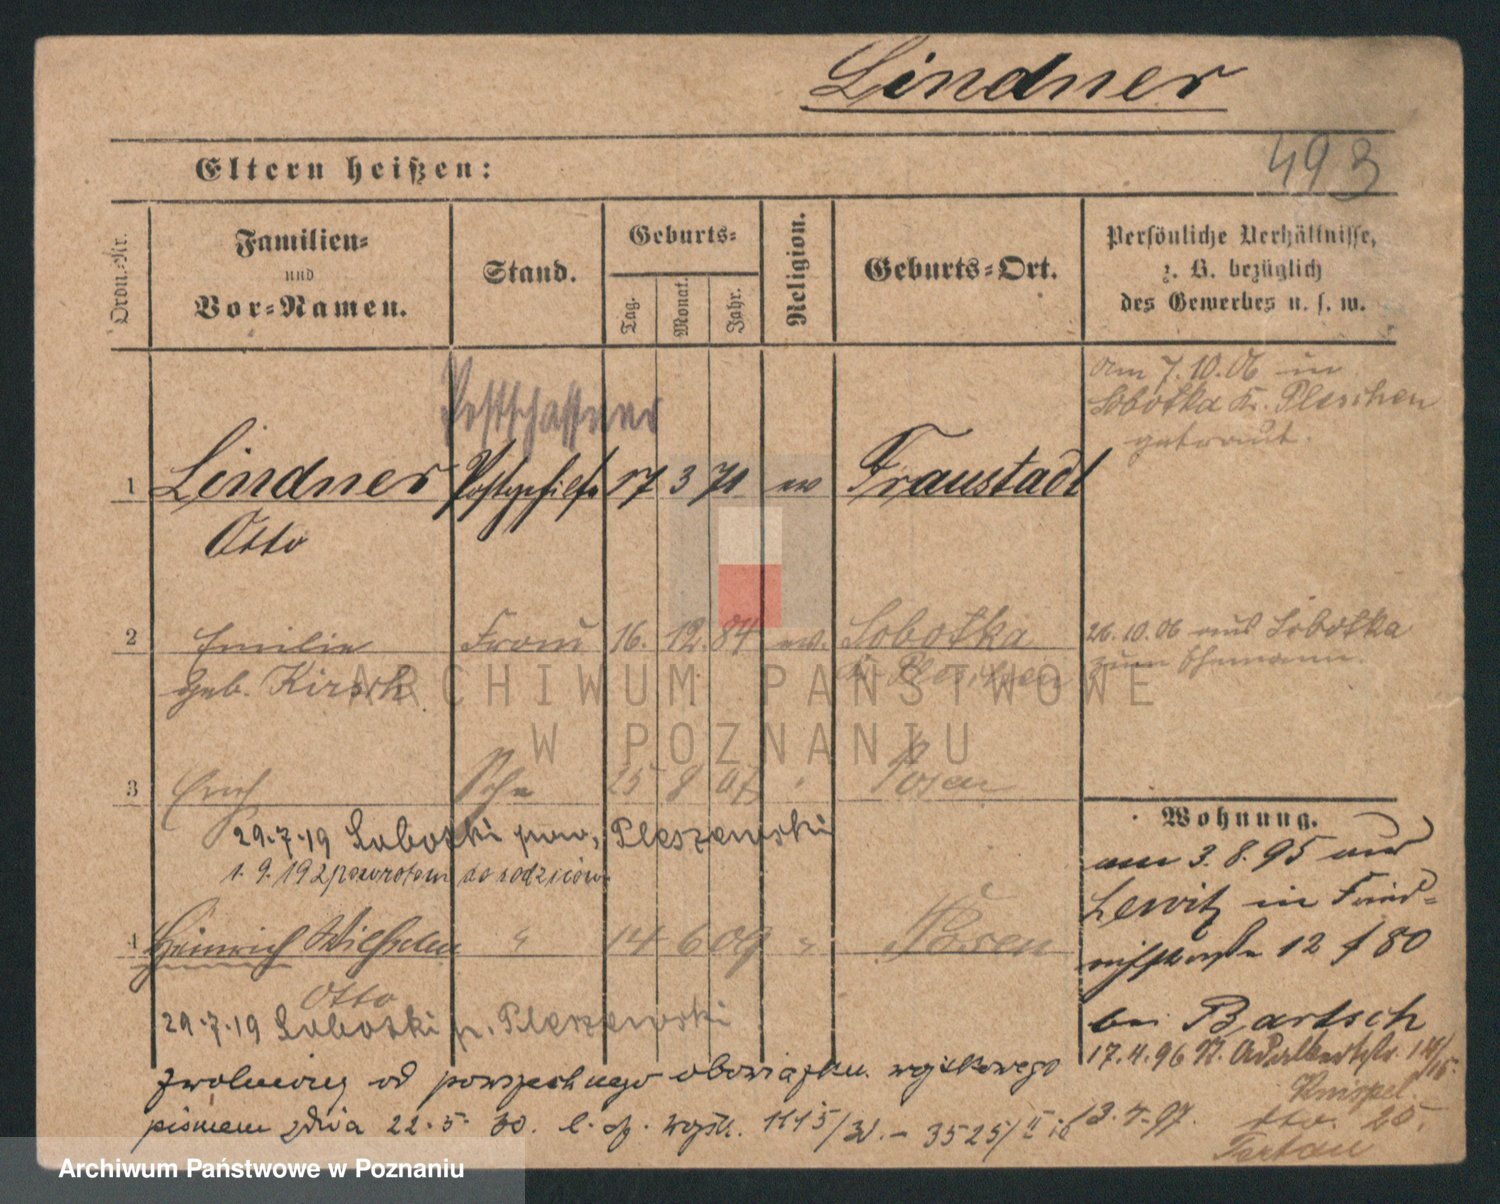 Lindner
493
Eltern heißen:
Ordn.-Nr.
Familien-
und
Vor-Namen.
Stand.
Geburts-
Tag.
Monat.
Jahr.
Religion.
Geburts-Ort.
Persönliche Verhältnisse,
z. B. bezüglich
des Gewerbes u. s. w.
Postschaffner
am 7.10.06 in
Sobotka Kr. Pleschen
getraut.
1 Lindner Postgehilfe 17 3 71 ev Fraustadt
Otto
2 Emilie Frau 16. 12. 84 ev. Sobotka
geb. Kirsch Kr. Pleschen
26.10.06 aus Sobotka
zum Ehemann.
3 Erich Sohn 25 8 07 " Posen
29.7.19 Sobotki pow. Pleszewski
1.9.19 z powrotem do rodziców
4 Heinrich Wilhelm " 14 6 09 " Posen
Otto
29.7.19 Sobotki p. Pleszewski
Wohnung.
am 3.8.95 aus
Lewitz in Fried-
richstraße 12 f 80
bei Bartsch
17.4.96 N. Adalbertstr.
Knispel
13.4.97. dto. 25.
zwolniony od powszechnego obowiązku wojskowego
pismem z dnia 22.5.30. l. dz. wojsk. 1115/30. - 3525/
ARCHIWUM PAŃSTWOWE
W POZNANIU
Archiwum Państwowe w Poznaniu